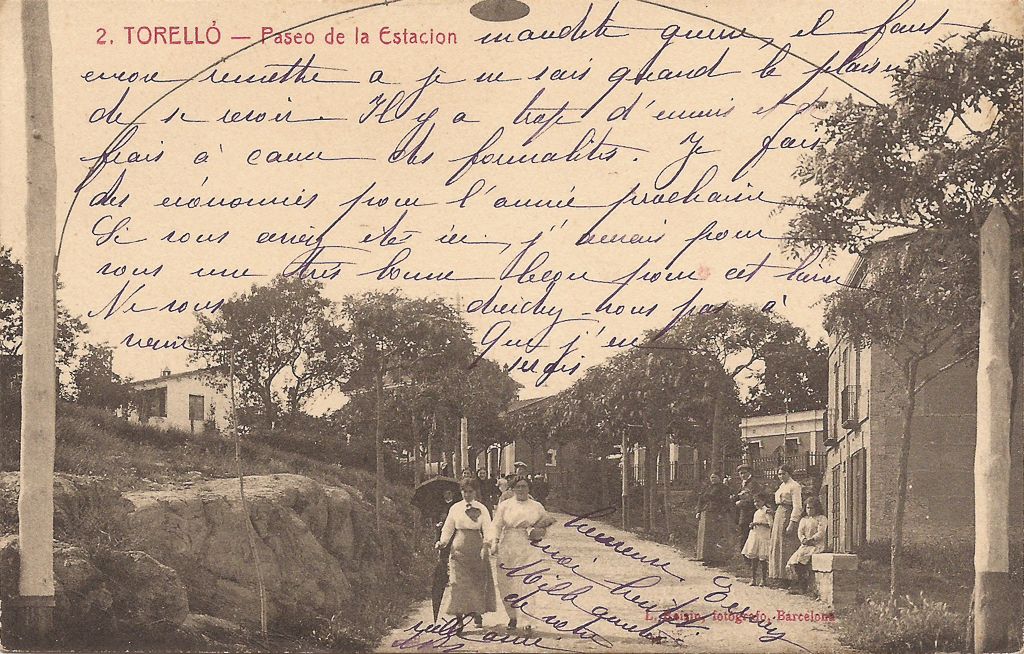 2. TORELLÓ — Paseo de la Estacion
maudite guerre, il faut
encore remettre a je ne sais quand le plaisir
de se revoir. Il y a trop d'ennuis et de
frais à cause des formalités. Je fais
des économies pour l'année prochaine
Si vous aviez été ici, j'aurais pour
vous une très bonne leçon pour cet hiver
Ne vous décidez-vous pas à
venir
Que j'en
serais
heureuse
moi
Mille
de votre
L. Roisin, fotógrafo, Barcelona